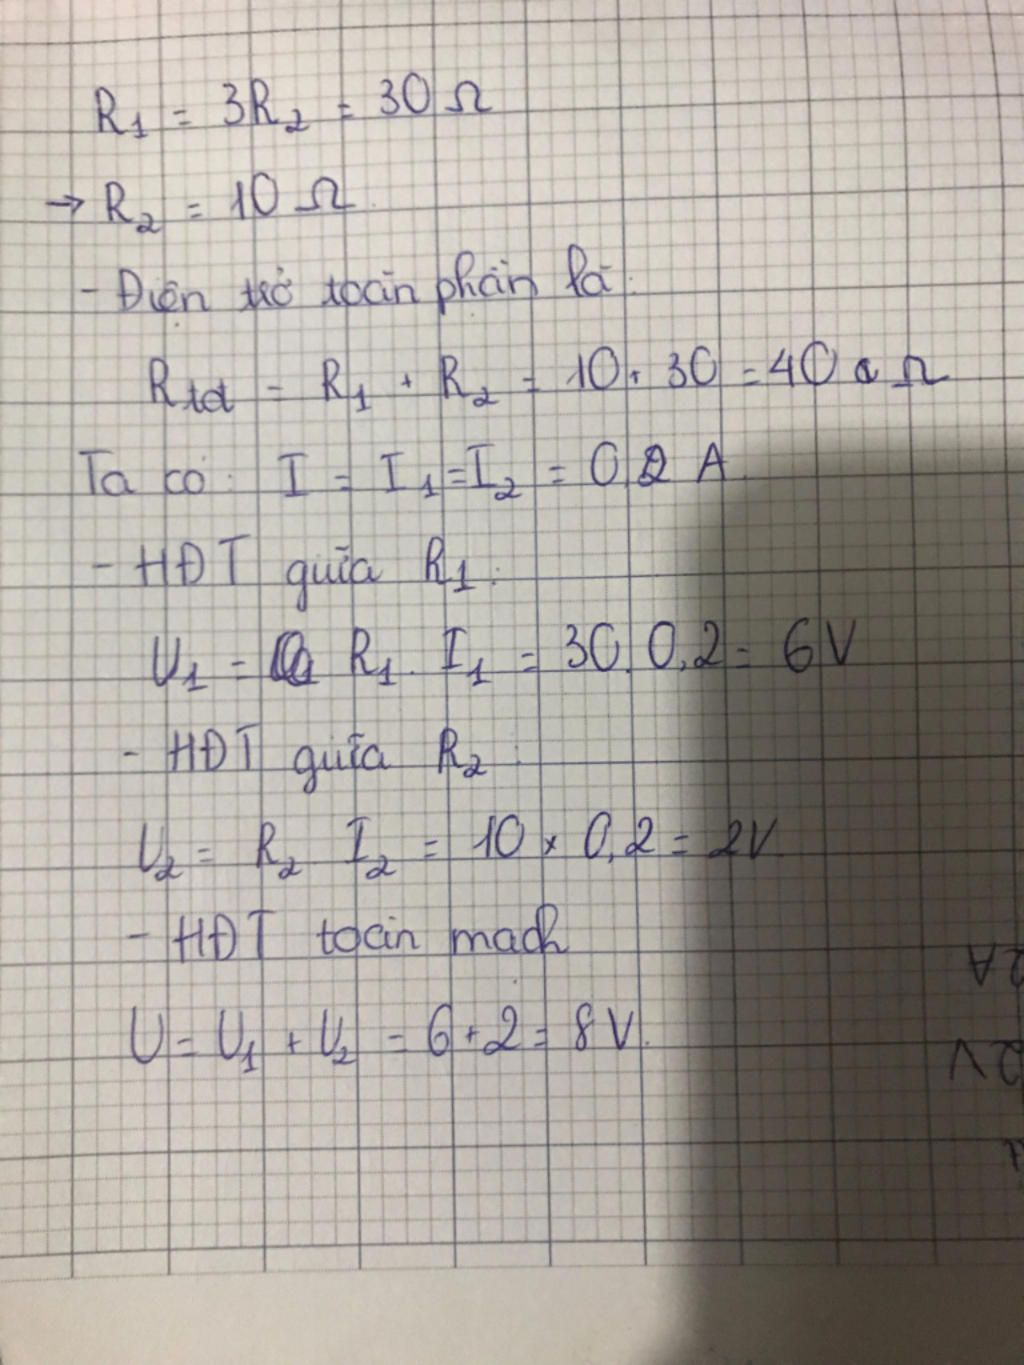 R₁ = 3R₂ = 30 Ω
→ R₂ = 10 Ω.
- Điện trở toàn phần là:
Rtđ = R₁ + R₂ = 10 + 30 = 40 Ω
Ta có: I = I₁ = I₂ = 0,2 A.
- HĐT giữa R₁:
U₁ = R₁. I₁ = 30. 0,2 = 6 V
- HĐT giữa R₂:
U₂ = R₂ I₂ = 10 x 0,2 = 2V.
- HĐT toàn mạch
U = U₁ + U₂ = 6 + 2 = 8 V.
2A
2V